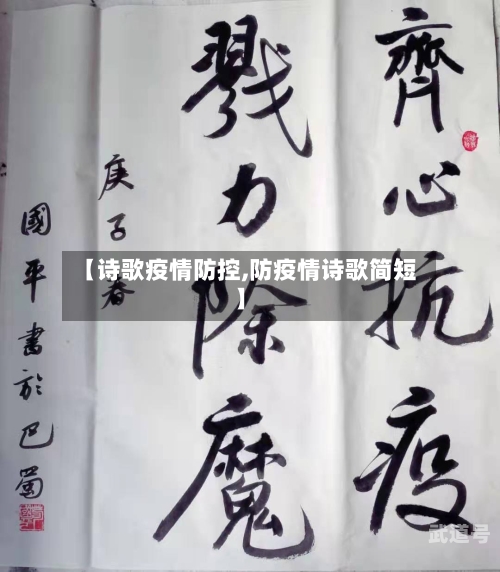 齊心抗疫
戮力除魔
庚子春
國平書於巴蜀
【诗歌疫情防控,防疫情诗歌简短
】
武道号